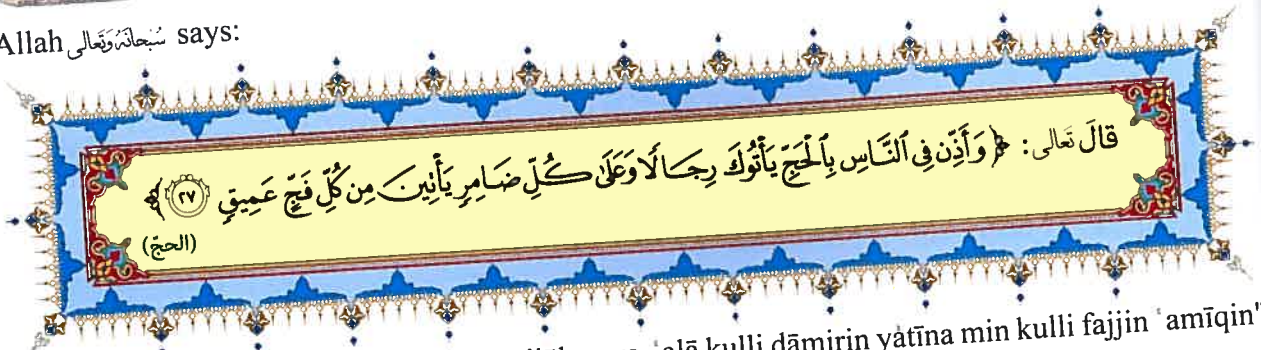 Allah سُبْحَانَهُ وَتَعَالَى says:
قالَ تَعَالى: ﴿وَأَذِّن فِي ٱلنَّاسِ بِٱلْحَجِّ يَأْتُوكَ رِجَالًا وَعَلَىٰ كُلِّ ضَامِرٍ يَأْتِينَ مِن كُلِّ فَجٍّ عَمِيقٍ ٢٧﴾
(الحجّ)
ʿalā kulli dāmirin yàtīna min kulli fajjin ʿamīqin"